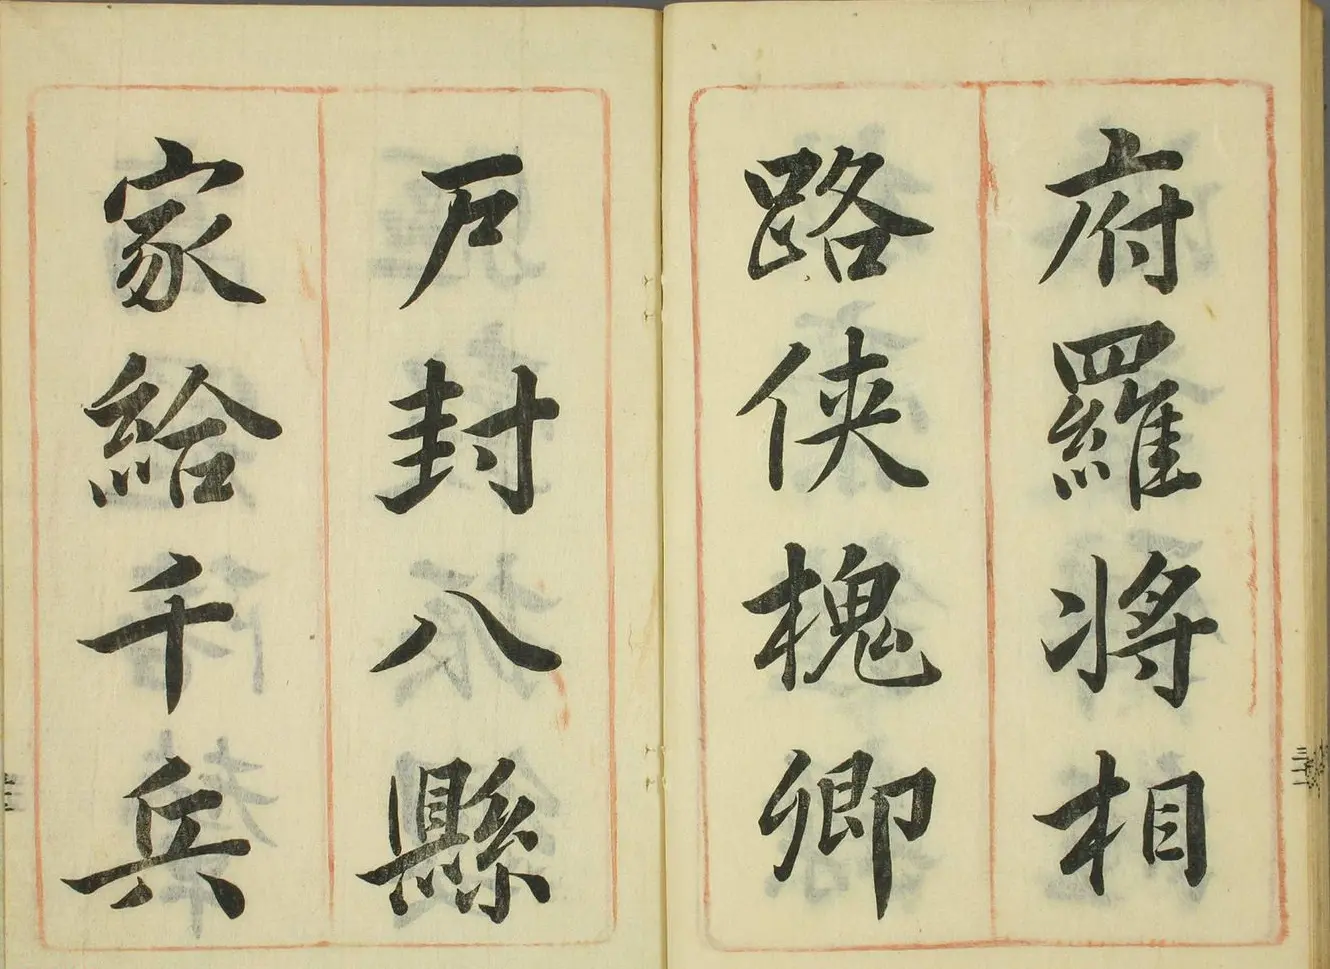 府羅將相
路俠槐卿
戸封八縣
家給千兵